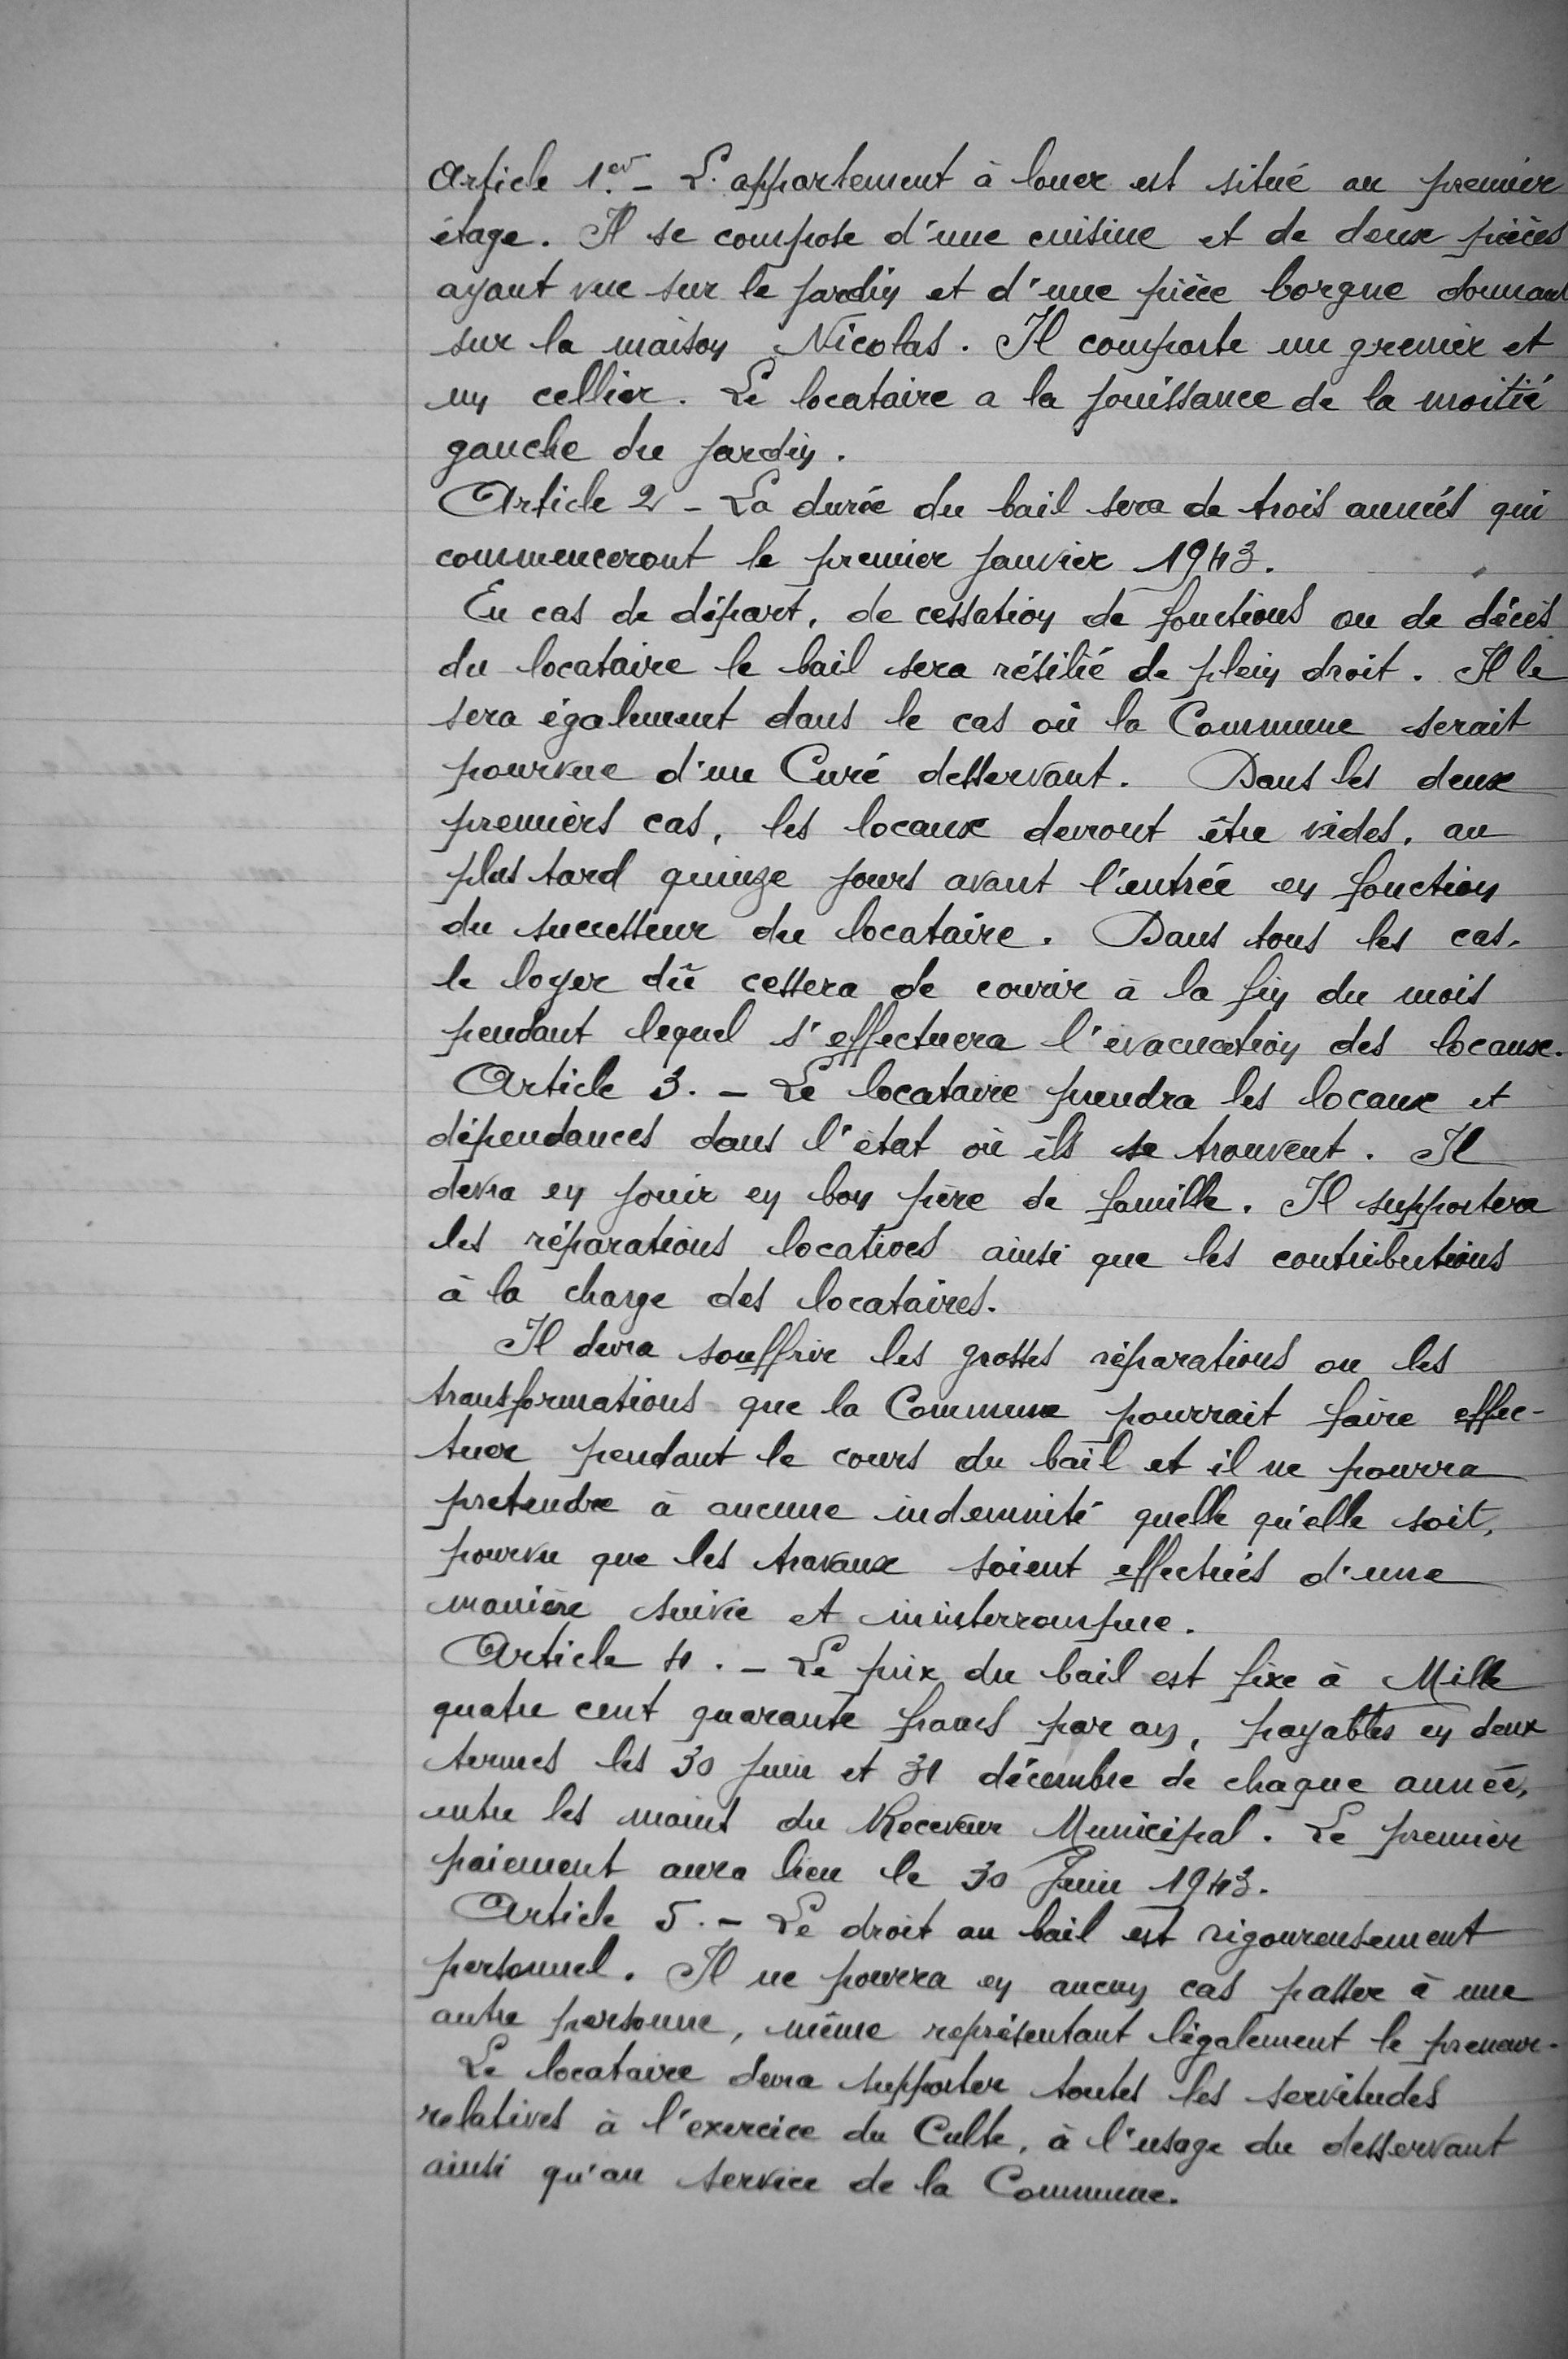 Article 1er. - L'appartement à louer est situé au premier
étage. Il se compose d'une cuisine et de deux pièces
ayant vue sur le jardin et d'une pièce borgne donnant
sur la maison Nicolas. Il comporte un grenier et
un cellier. Le locataire a la jouissance de la moitié
gauche du jardin.
Article 2 - La durée du bail sera de trois années qui
commenceront le premier janvier 1943.
En cas de départ, de cessation de fonctions ou de décès
du locataire le bail sera résilié de plein droit. Il le
sera également dans le cas où la Commune serait
pourvue d'un Curé desservant. Dans les deux
premiers cas, les locaux devront être vides, au
plus tard quinze jours avant l'entrée en fonction
du successeur du locataire. Dans tous les cas,
le loyer dû cessera de courir à la fin du mois
pendant lequel s'effectuera l'évacuation des locaux.
Article 3. - Le locataire prendra les locaux et
dépendances dans l'état où ils se trouvent. Il
devra en jouir en bon père de famille. Il supportera
les réparations locatives ainsi que les contributions
à la charge des locataires.
Il devra souffrir les grosses réparations ou les
transformations que la Commune pourrait faire effec-
tuer pendant le cours du bail et il ne pourra
pretendre à aucune indemnité quelle qu'elle soit,
pourvu que les travaux soient effectués d'une
manière suivie et ininterrompue.
Article 4. - Le prix du bail est fixe à Mille
quatre cent quarante francs par an, payables en deux
termes les 30 juin et 31 décembre de chaque année,
entre les mains du Receveur Municipal. Le premier
paiement aura lieu le 30 Juin 1943.
Article 5. - Le droit au bail est rigoureusement
personnel. Il ne pourra en aucun cas passer à une
autre personne, même représentant légalement le preneur.
Le locataire devra supporter toutes les servitudes
relatives à l'exercice du Culte, à l'usage du desservant
ainsi qu'au service de la Commune.